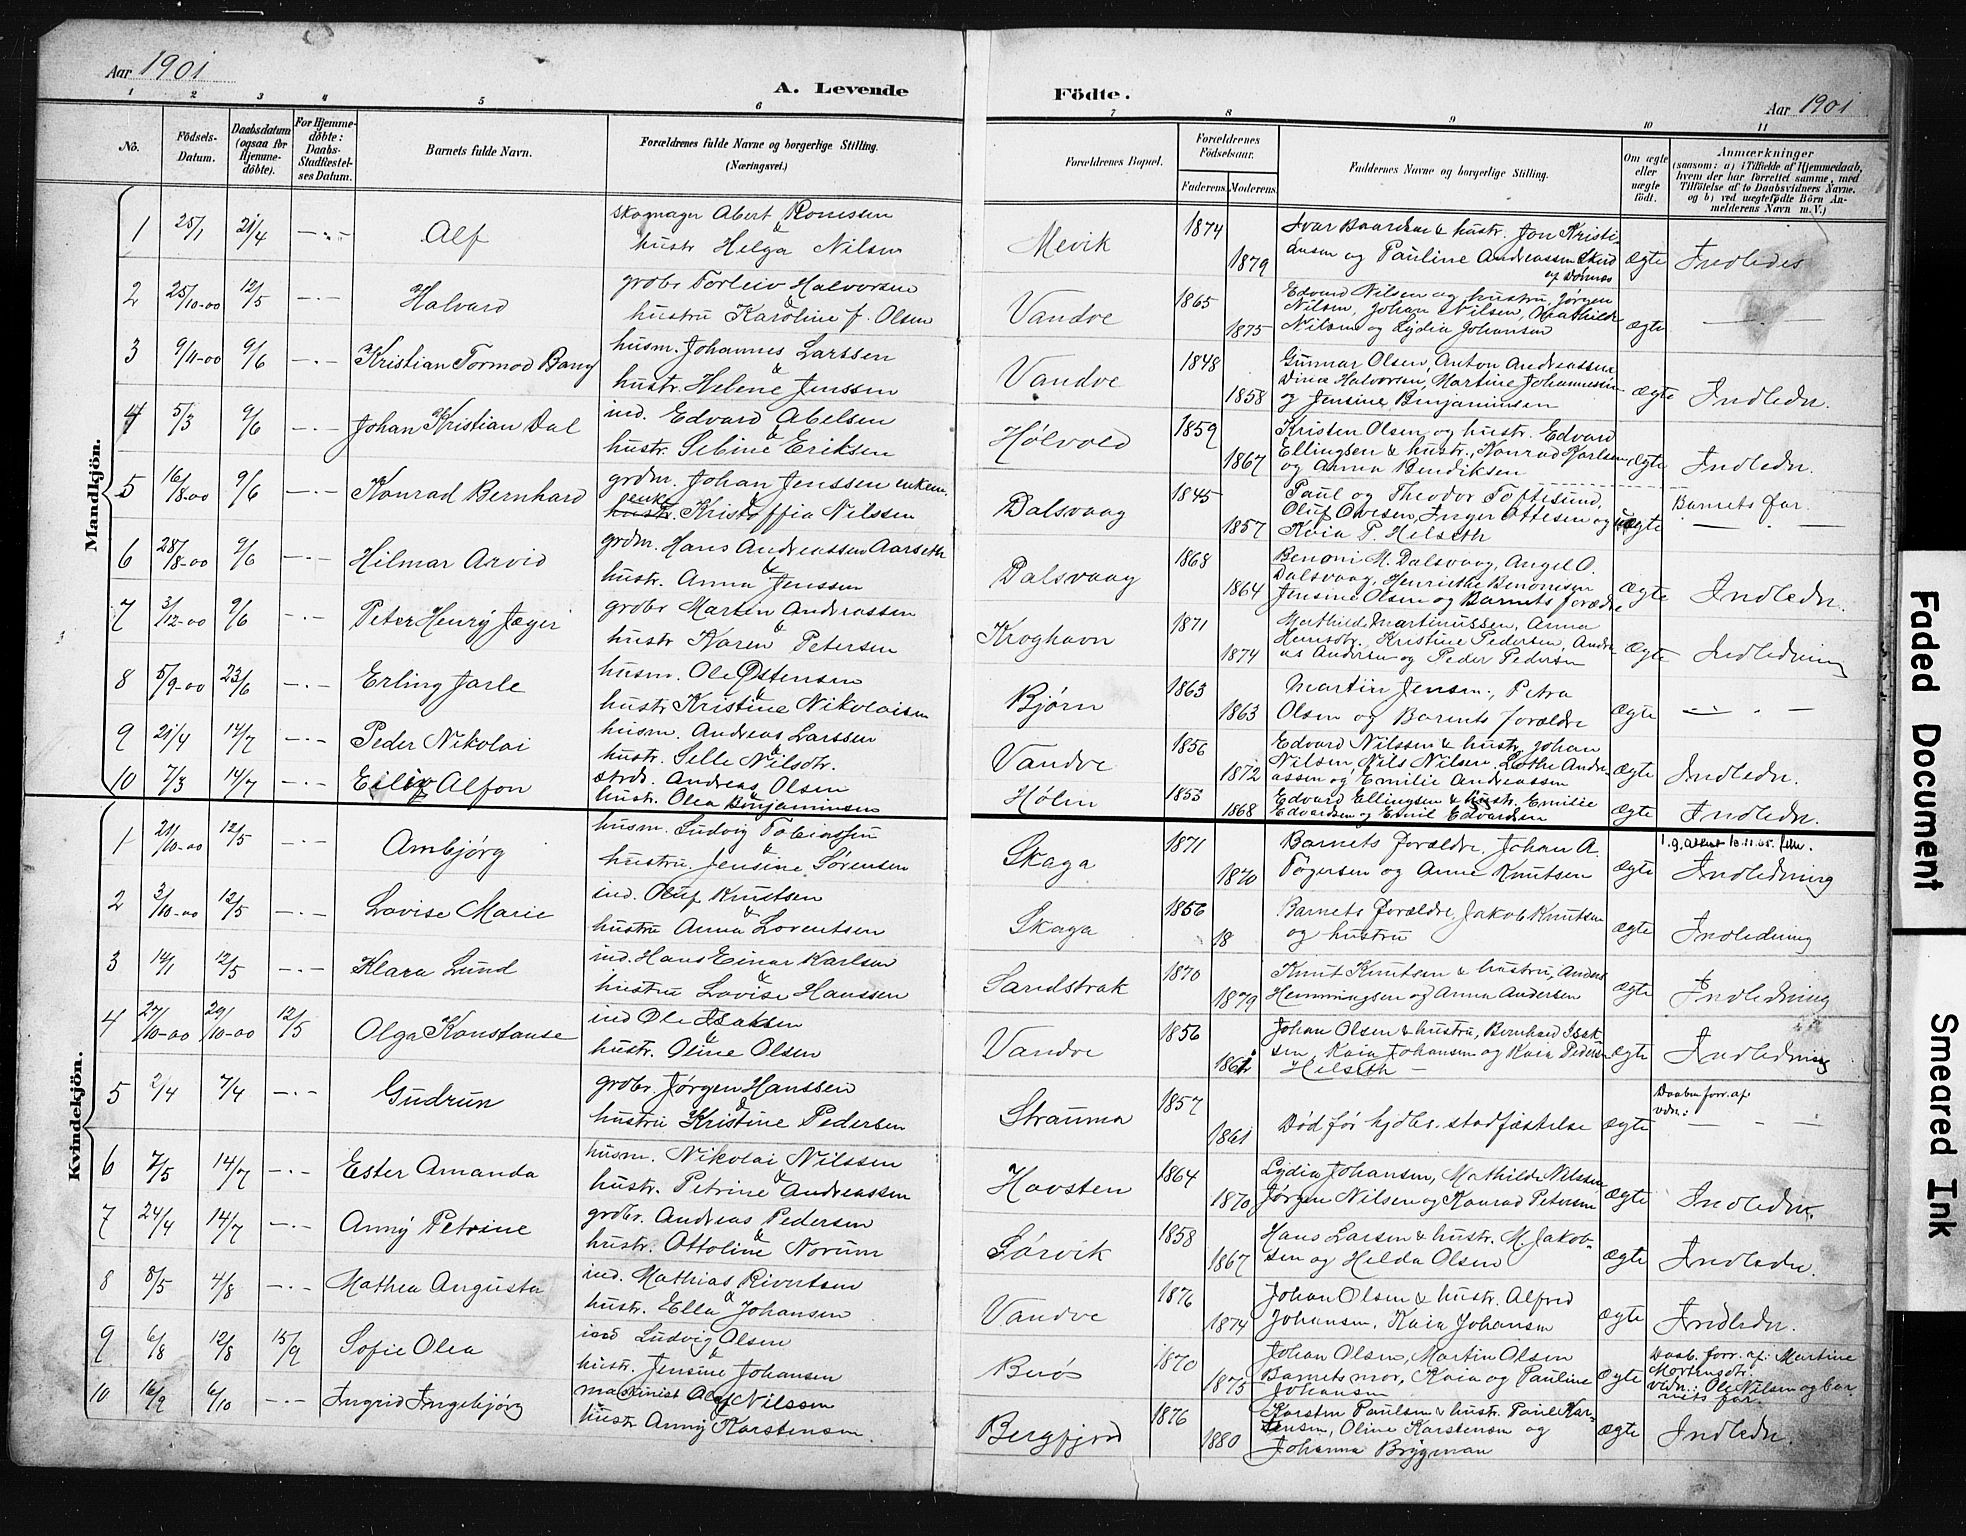 Aar 1901
A. Levende
Födte.
Aar 1901
1 2 3 4 5 6 7 8 9 10 11
No.
Födsels-Datum.
Daabsdatum (ogsaa for Hjemme-döbte).
For Hjemme-döbte: Daabs-Stadfæstel-ses Datum.
Barnets fulde Navn.
Forældrenes fulde Navne og borgerlige Stilling. (Næringsvei.)
Forældrenes Bopæl.
Forældrenes Födselsaar.
Faderens. Moderens.
Faddernes Navne og borgerlige Stilling.
Om ægte eller uægte födt.
Anmærkninger
(saasom: a) i Tilfælde af Hjemmedaab, hvem der har forrettet samme, med Tilföielse af to Daabsvidners Navne. og b) ved uægtefödte Börn An-melderens Navn m. V.)
Mandkjön.
1 25/1 21/4 -·- Alf
hustr Helga Nilsen
Mevik 1874 1879
og Pauline Andreassen
af Dønnes
ægte Indledes
2 25/10-00 12/5 -·- Halvard
grdbr Torleiv Halvorsen
& hustru Karoline f. Olsen
Vandve 1865 1875
Edvard Nilsen og hustru, Jørgen
Nilsen, Johan Nilsen, Mathilde
Nilsen og Lydia Johansen
ægte -·-
3 9/11-00 9/6 -·- Kristian Tormod Bang
husm. Johannes Larssen
& hustr. Helene Jenssen
Vandve 1848 1858
Gunnar Olsen, Anton Andreassen
Dina Halvorsen, Martine Johannesen
og Jensine Benjaminsen
ægte Indledn.
4 5/3 9/6 Johan Kristian Dal
ind. Edvard Abelsen
& hustr. Sebine Eriksen
Hølvold 1859 1867
Kristen Olsen og hustr. Edvard
Ellingsen & hustr., Konrad Karlsen
og Anna Bendiksen
ægte Indledn.
5 16/8-00 9/6 -·- Konrad Bernhard
grdm. Johan Jenssen enkem.
penke hustr. Kristoffia Nilssen
Dalsvaag 1845 1857
Paul og Theodor Toftesund,
Oluf Ovesen, Inger Ottesen og
Kaia P. Helseth
uægte Barnets far.
6 28/8-00 9/6 -·- Hilmar Arvid
grdm. Hans Andreassen Aarseth
& hustr. Anna Jenssen
Dalsvaag 1868 1864
Benoni M. Dalsvaag, Angel O.
Dalsvaag, Henriethe Benonisen
Jensine Olsen og Barnets foræld
ægte Indledn.
7 3/12-00 9/6 -·- Peter Henry Jæger
grdbr Martin Andreassen
& hustr Karen Petersen
Kroghavn 1871 1874
Mathilde Martinussen, Anna
Hemsdtr., Kristine Pedersen, Andre-
as Andersen og Peder Pedersen
ægte Indledning
8 5/9-00 23/6 -·- Erling Jarle
husm. Ole Østensen
& hustr Kristine Nikolaisen
Bjørn 1863 1863
Martin Jensen, Petra
Olsen og Barnets forældre
ægte -·-
9 21/4 14/7 -·- Peder Nikolai
husm. Andreas Larssen
& hustr. Selle Nilsdtr.
Vandve 1856 1872
Edvard Nilssen & hustr, Johan
Nilsen, Nils Nilsen, Lothe Andre-
assen og Emilie Andreassen
ægte Indledn.
10 7/3 14/7 -·- Eiliv Alfon
strds. Andreas Olsen
& hustr. Olea Benjaminsen
Hølen 1853 1868
Edvard Ellingsen & hustr. Emilie
Edvardsen og Emil Edvardsen
ægte Indledn.
Kvindekjön.
1 21/10-00 12/5 -·- Ambjørg
husm. Ludvig Tobiassen
& hustru. Jensine Sørensen
Skaga 1871 1870
Barnets forældre, Johan A.
Tøgersen og Anne Knutsen
ægte Indledning
2 3/10-00 12/5 -·- Lovise Marie
ind. Oluf Knutsen
& hustru Anna Lorentsen
Skaga 1856 18
Barnets forældre, Jakob Knutsen
og hustru
ægte Indledning
3 14/1 12/5 -·- Klara Lund
ind. Hans Einar Karlsen
& hustru Lovise Hanssen
Sandstrak 1870 1879
Knut Knutsen & hustru, Anders
Hemmingsen og Anna Andersen
ægte Indledning
4 27/10-00 29/10-00 12/5 Olga Konstanse
ind Ole Isaksen
& hustr. Oline Olsen
Vandve 1856 1862
Johan Olsen & hustru, Bernhard Isak-
sen, Kaia Johansen og Kaia Pedersen
Hilseth -
ægte Indledning
5 2/4 7/4 -·- Gudrun
grdbr. Jørgen Hanssen
& hustru Kristine Pedersen
Strauma 1857 1861
Død før hjdbs. stadfæstelse
ægte Daaben forr. af
vidn.:
6 7/5 14/7 -·- Ester Amanda
husm. Nikolai Nilssen
& hustr. Petrine Andreassen
Havsten 1864 1870
Lydia Johansen, Mathilde Nilssen
Jørgen Nilsen og Konrad Petersen
ægte Indledn.
7 24/4 14/7 -·- Anny Petrine
grdbr. Andreas Pedersen
& hustr. Ottoline Norum
Sørvik 1858 1867
Hans Larsen & hustr. M. Jakob-
sen og Hilda Olsen
ægte Indledn.
8 8/5 4/8 -·- Mathea Augusta
ind. Mathias Rivertsen
& hustr. Ella Johansen
Vandve 1876 1874
Johan Olsen & hustr. Alfred
Johansen, Kaia Johansen
ægte Indledn.
9 6/8 12/8 15/9 Sofie Olea
ind Ludvig Olsen
& hustr. Jensine Johansen
Buøs 1870 1875
Johan Olsen, Martin Olsen
Barnets mor, Kaia og Pauline
Johansen
ægte Daab. forr. af: Martine
Mortensdtr.
vidn.: Ole Nilsen og bar-
nets far.
10 16/9 6/10 -·- Ingrid Ingebjørg
maskinist Olaf Nilssen
& hustr Anny Karstensen.
Bergfjord 1876 1880
Karsten Paulsen & hustr. Paul Kar-
stensen, Oline Karstensen og
Johanna Brygman
ægte Indledn.
Faded Document
Smeared Ink